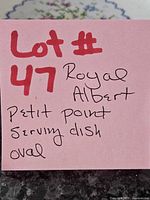 Lot #
47 Royal
Albert
Petit point
Serving dish
oval